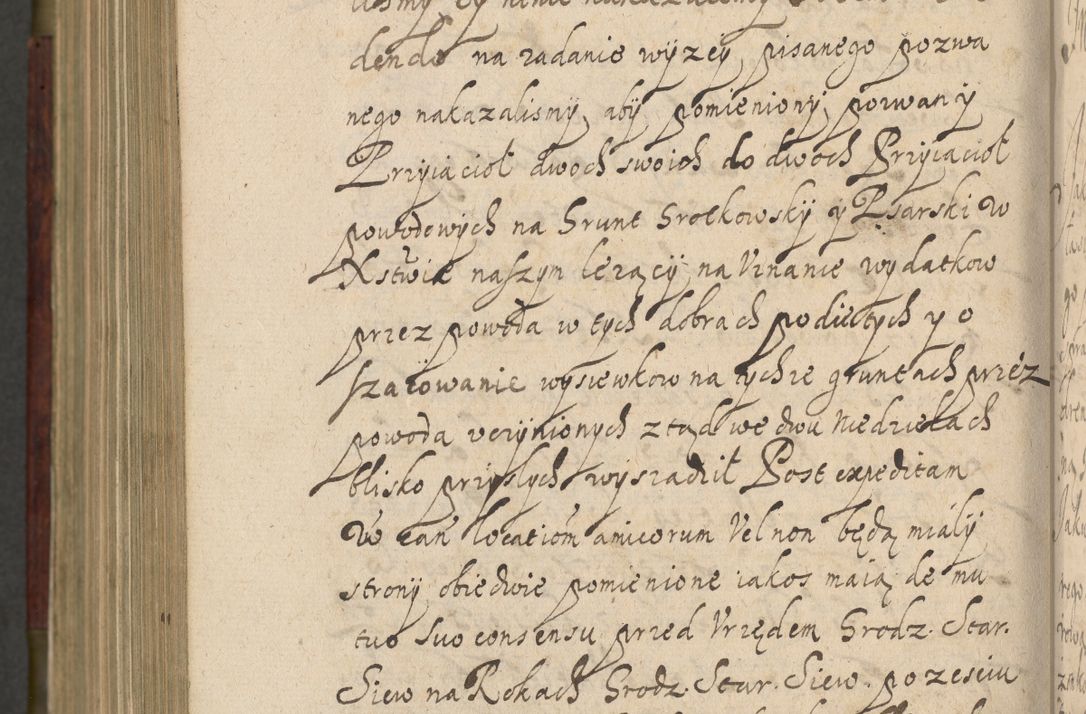 dendo na żadanie wyzey pisanego pozwa
nego nakazalismy, aby pomieniony pozwany
Przyiacioł dwoch swoich do dwoch Przyiacioł
powodowych na Grunt Grotkowsky y Psarski w
Xstwie naszym lezący, na Uznanie wydatkow
przez powoda w tych dobrach podietych y o
szazowanie wysiewkow na tychze gruntach przez
powoda uczynionych ztąd we dwu Niedzielach
blisko przyslych wysradził Post expeditam
locatiom amicorum Vel non będą miały
strony obiedwie pomienione iakos maią de mu
tuo suo consensu przed Urzędem Grodz. Star.
Siew na Rokach Grodz. Star. Siew. po zesciu